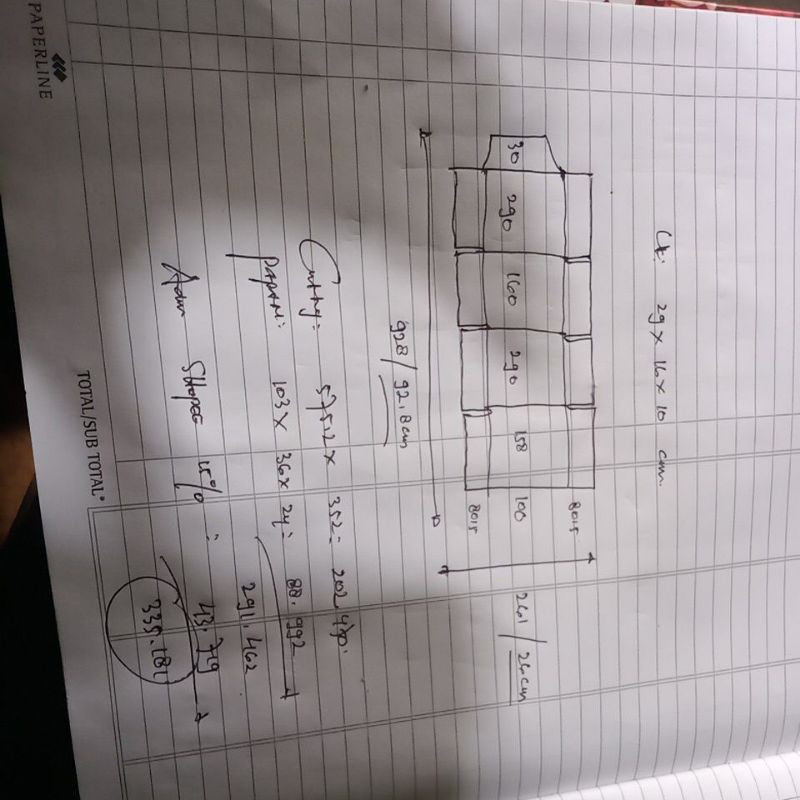 Uk: 29 x 16 x 10 cm.
30 290 160 290 158
80,5
100
80,5
261 / 26 cm
928 / 92,8 cm
575.2 x 352 = 202 470.
103 x 36 x 24 = 88.992
291.462
Adm Shopee 15% : 43.719
335.181
PAPERLINE
TOTAL/SUB TOTAL*